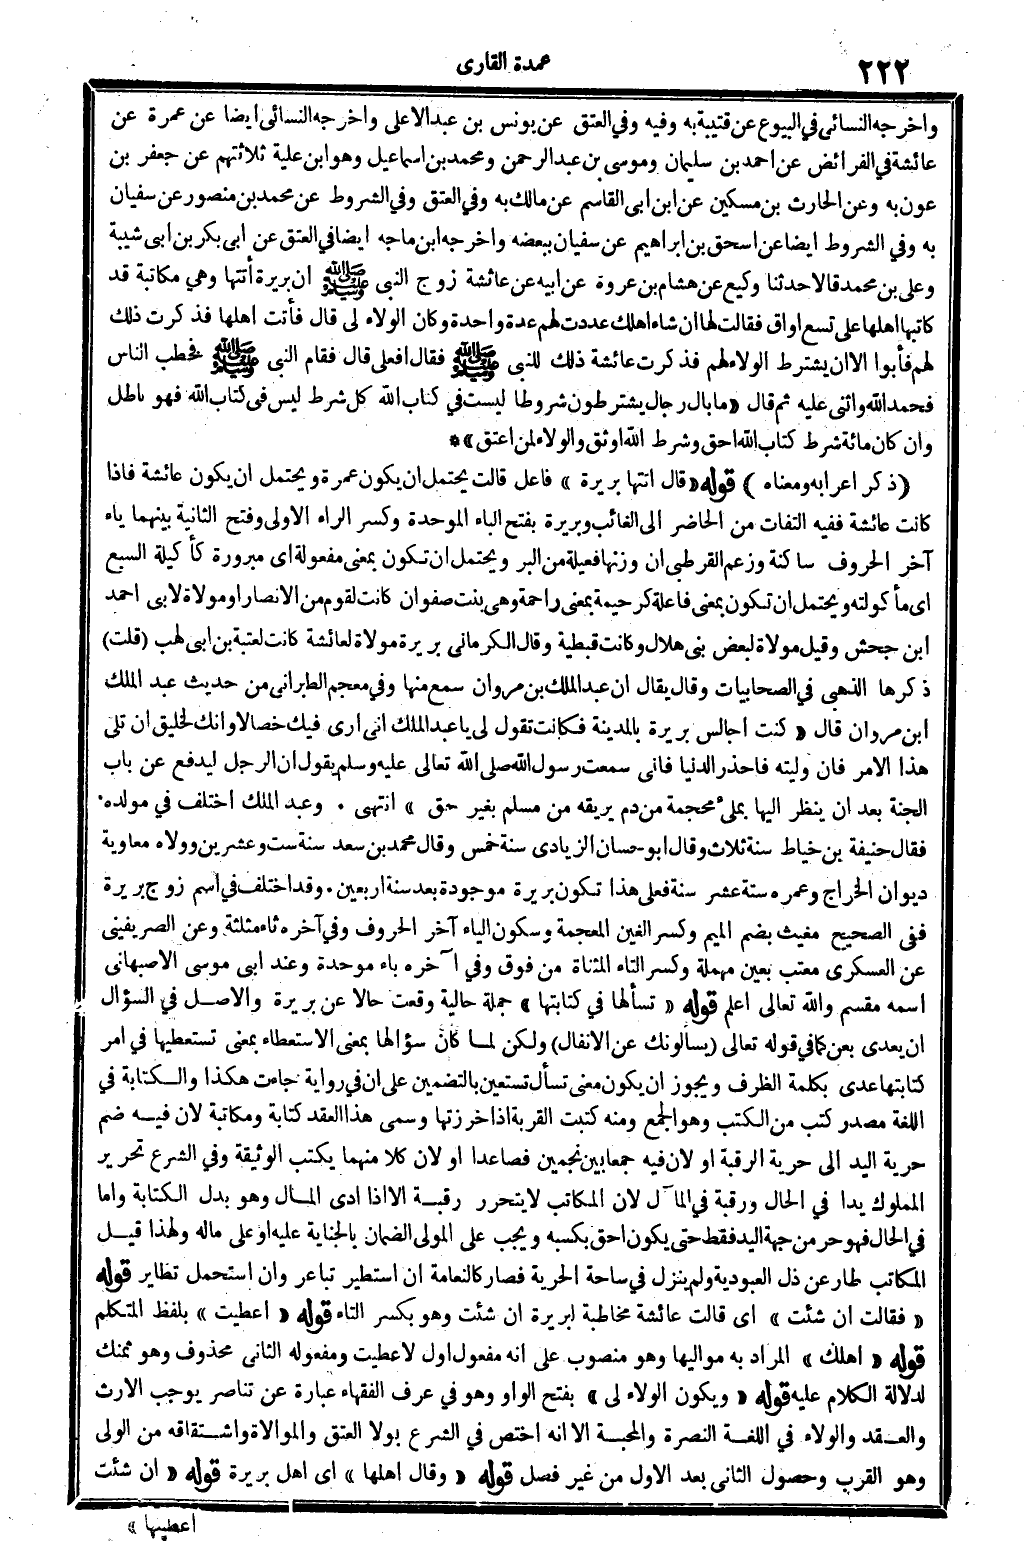 ٢٢٢
عمدة القارى
واخرجه النسائى في البيوع عن قتيبة به وفيه وفي العتق عن يونس بن عبد الاعلى واخرجه النسائى ايضا عن عمرة عن
عائشة في الفرائض عن احمد بن سليمان وموسى بن عبد الرحمن ومحمد بن اسماعيل وهو ابن علية ثلاثتهم عن جعفر بن
عون به وعن الحارث بن مسكين عن ابن ابى القاسم عن مالك به وفي العتق وفي الشروط عن محمد بن منصور عن سفيان
به وفي الشروط ايضا عن اسحق بن ابراهيم عن سفيان ببعضه واخرجه ابن ماجه ايضا في العتق عن ابى بكر بن ابى شيبة
وعلى بن محمد قالا حدثنا وكيع عن هشام بن عروة عن ابيه عن عائشة زوج النبى ﷺ ان بريرة أتتها وهي مكاتبة قد
كاتبها اهلها على تسع اواق فقالت لها ان شاء اهلك عددت لهم عدة واحدة وكان الولاء لى قال فأتت اهلها فذكرت ذلك
لهم فأبوا الا ان يشترط الولاء لهم فذكرت عائشة ذلك للنبى ﷺ فقال افعلى قال فقام النبى ﷺ فخطب الناس
فحمد الله واثنى عليه ثم قال « ما بال رجال يشترطون شروطا ليست في كتاب الله كل شرط ليس فى كتاب الله فهو باطل
وان كان مائة شرط كتاب الله احق وشرط الله اوثق والولاء لمن اعتق » *
( ذكر اعرابه ومعناه ) قوله « قال اتتها بريرة » فاعل قالت يحتمل ان يكون عمرة ويحتمل ان يكون عائشة فاذا
كانت عائشة ففيه التفات من الحاضر الى الغائب وبريرة بفتح الباء الموحدة وكسر الراء الاولى وفتح الثانية بينهما ياء
آخر الحروف ساكنة وزعم القرطبى ان وزنها فعيلة من البر ويحتمل ان تكون بمعنى مفعولة اى مبرورة كأكيلة السبع
اى مأكولته ويحتمل ان تكون بمعنى فاعلة كرحيمة بمعنى راحمة وهى بنت صفوان كانت لقوم من الانصار او مولاة لابى احمد
ابن جحش وقيل مولاة لبعض بنى هلال وكانت قبطية وقال الكرمانى بريرة مولاة لعائشة كانت لعتبة بن ابى لهب (قلت)
ذكرها الذهبى في الصحابيات وقال يقال ان عبد الملك بن مروان سمع منها وفي معجم الطبرانى من حديث عبد الملك
ابن مروان قال « كنت اجالس بريرة بالمدينة فكانت تقول لى يا عبد الملك انى ارى فيك خصالا وانك لخليق ان تلى
هذا الامر فان وليته فاحذر الدنيا فانى سمعت رسول الله صلى الله تعالى عليه وسلم يقول ان الرجل ليدفع عن باب
الجنة بعد ان ينظر اليها بملء محجمة من دم يريقه من مسلم بغير حق » انتهى . وعبد الملك اختلف في مولده .
فقال حنيفة بن خياط سنة ثلاث وقال ابو حسان الزيادى سنة خمس وقال محمد بن سعد سنة ست وعشرين وولاه معاوية
ديوان الخراج وعمره ستة عشر سنة فعلى هذا تكون بريرة موجودة بعد سنة اربعين . وقد اختلف في اسم زوج بريرة
ففى الصحيح مغيث بضم الميم وكسر الغين المعجمة وسكون الياء آخر الحروف وفي آخره ثاء مثلثة وعن الصريفينى
عن العسكرى معتب بعين مهملة وكسر التاء المثناة من فوق وفي آخره باء موحدة وعند ابى موسى الاصبهانى
اسمه مقسم والله تعالى اعلم قوله « تسألها في كتابتها » جملة حالية وقعت حالا عن بريرة والاصل في السؤال
ان يعدى بعن كما في قوله تعالى (يسألونك عن الانفال) ولكن لما كان سؤالها بمعنى الاستعطاء بمعنى تستعطيها في امر
كتابتها عدى بكلمة الظرف ويجوز ان يكون معنى تسأل تستعين بالتضمين على ان في رواية جاءت هكذا والكتابة في
اللغة مصدر كتب من الكتب وهو الجمع ومنه كتبت القربة اذا خرزتها وسمى هذا العقد كتابة ومكاتبة لان فيه ضم
حرية اليد الى حرية الرقبة او لان فيه جمعا بين نجمين فصاعدا او لان كلا منهما يكتب الوثيقة وفي الشرع تحرير
المملوك يدا في الحال ورقبة في المآل لان المكاتب لا يتحرر رقبة الا اذا ادى المال وهو بدل الكتابة واما
في الحال فهو حر من جهة اليد فقط حتى يكون احق بكسبه ويجب على المولى الضمان بالجناية عليه او على ماله ولهذا قيل
المكاتب طار عن ذل العبودية ولم ينزل في ساحة الحرية فصار كالنعامة ان استطير تباعر وان استحمل تطاير قوله
« فقالت ان شئت » اى قالت عائشة مخاطبة لبريرة ان شئت وهو بكسر التاء قوله « اعطيت » بلفظ المتكلم
قوله « اهلك » المراد به مواليها وهو منصوب على انه مفعول اول لاعطيت ومفعوله الثانى محذوف وهو ثمنك
لدلالة الكلام عليه قوله « ويكون الولاء لى » بفتح الواو وهو في عرف الفقهاء عبارة عن تناصر يوجب الارث
والعقد والولاء في اللغة النصرة والمحبة الا انه اختص في الشرع بولا العتق والموالاة واشتقاقه من الولى
وهو القرب وحصول الثانى بعد الاول من غير فصل قوله « وقال اهلها » اى اهل بريرة قوله « ان شئت
اعطيتها »